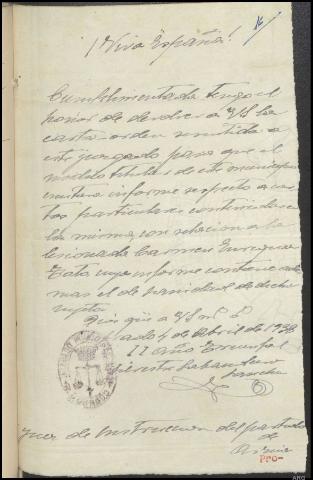 ¡Viva España!
Cumplimentada tengo el
honor de devolver a VS la
carta-orden remitida a
este juzgado para que el
medico titular de este municipio
emitiera informe respecto a cier
tos particulares contenidos en
la misma, con relacion a la
lesionada Carmen
cuyo informe contiene ade
mas el de sanidad de dicha
Dios gûe a VS m. a.
4 de Abril de 1938
II Año Triunfal
Juez de Instruccion del partido
de